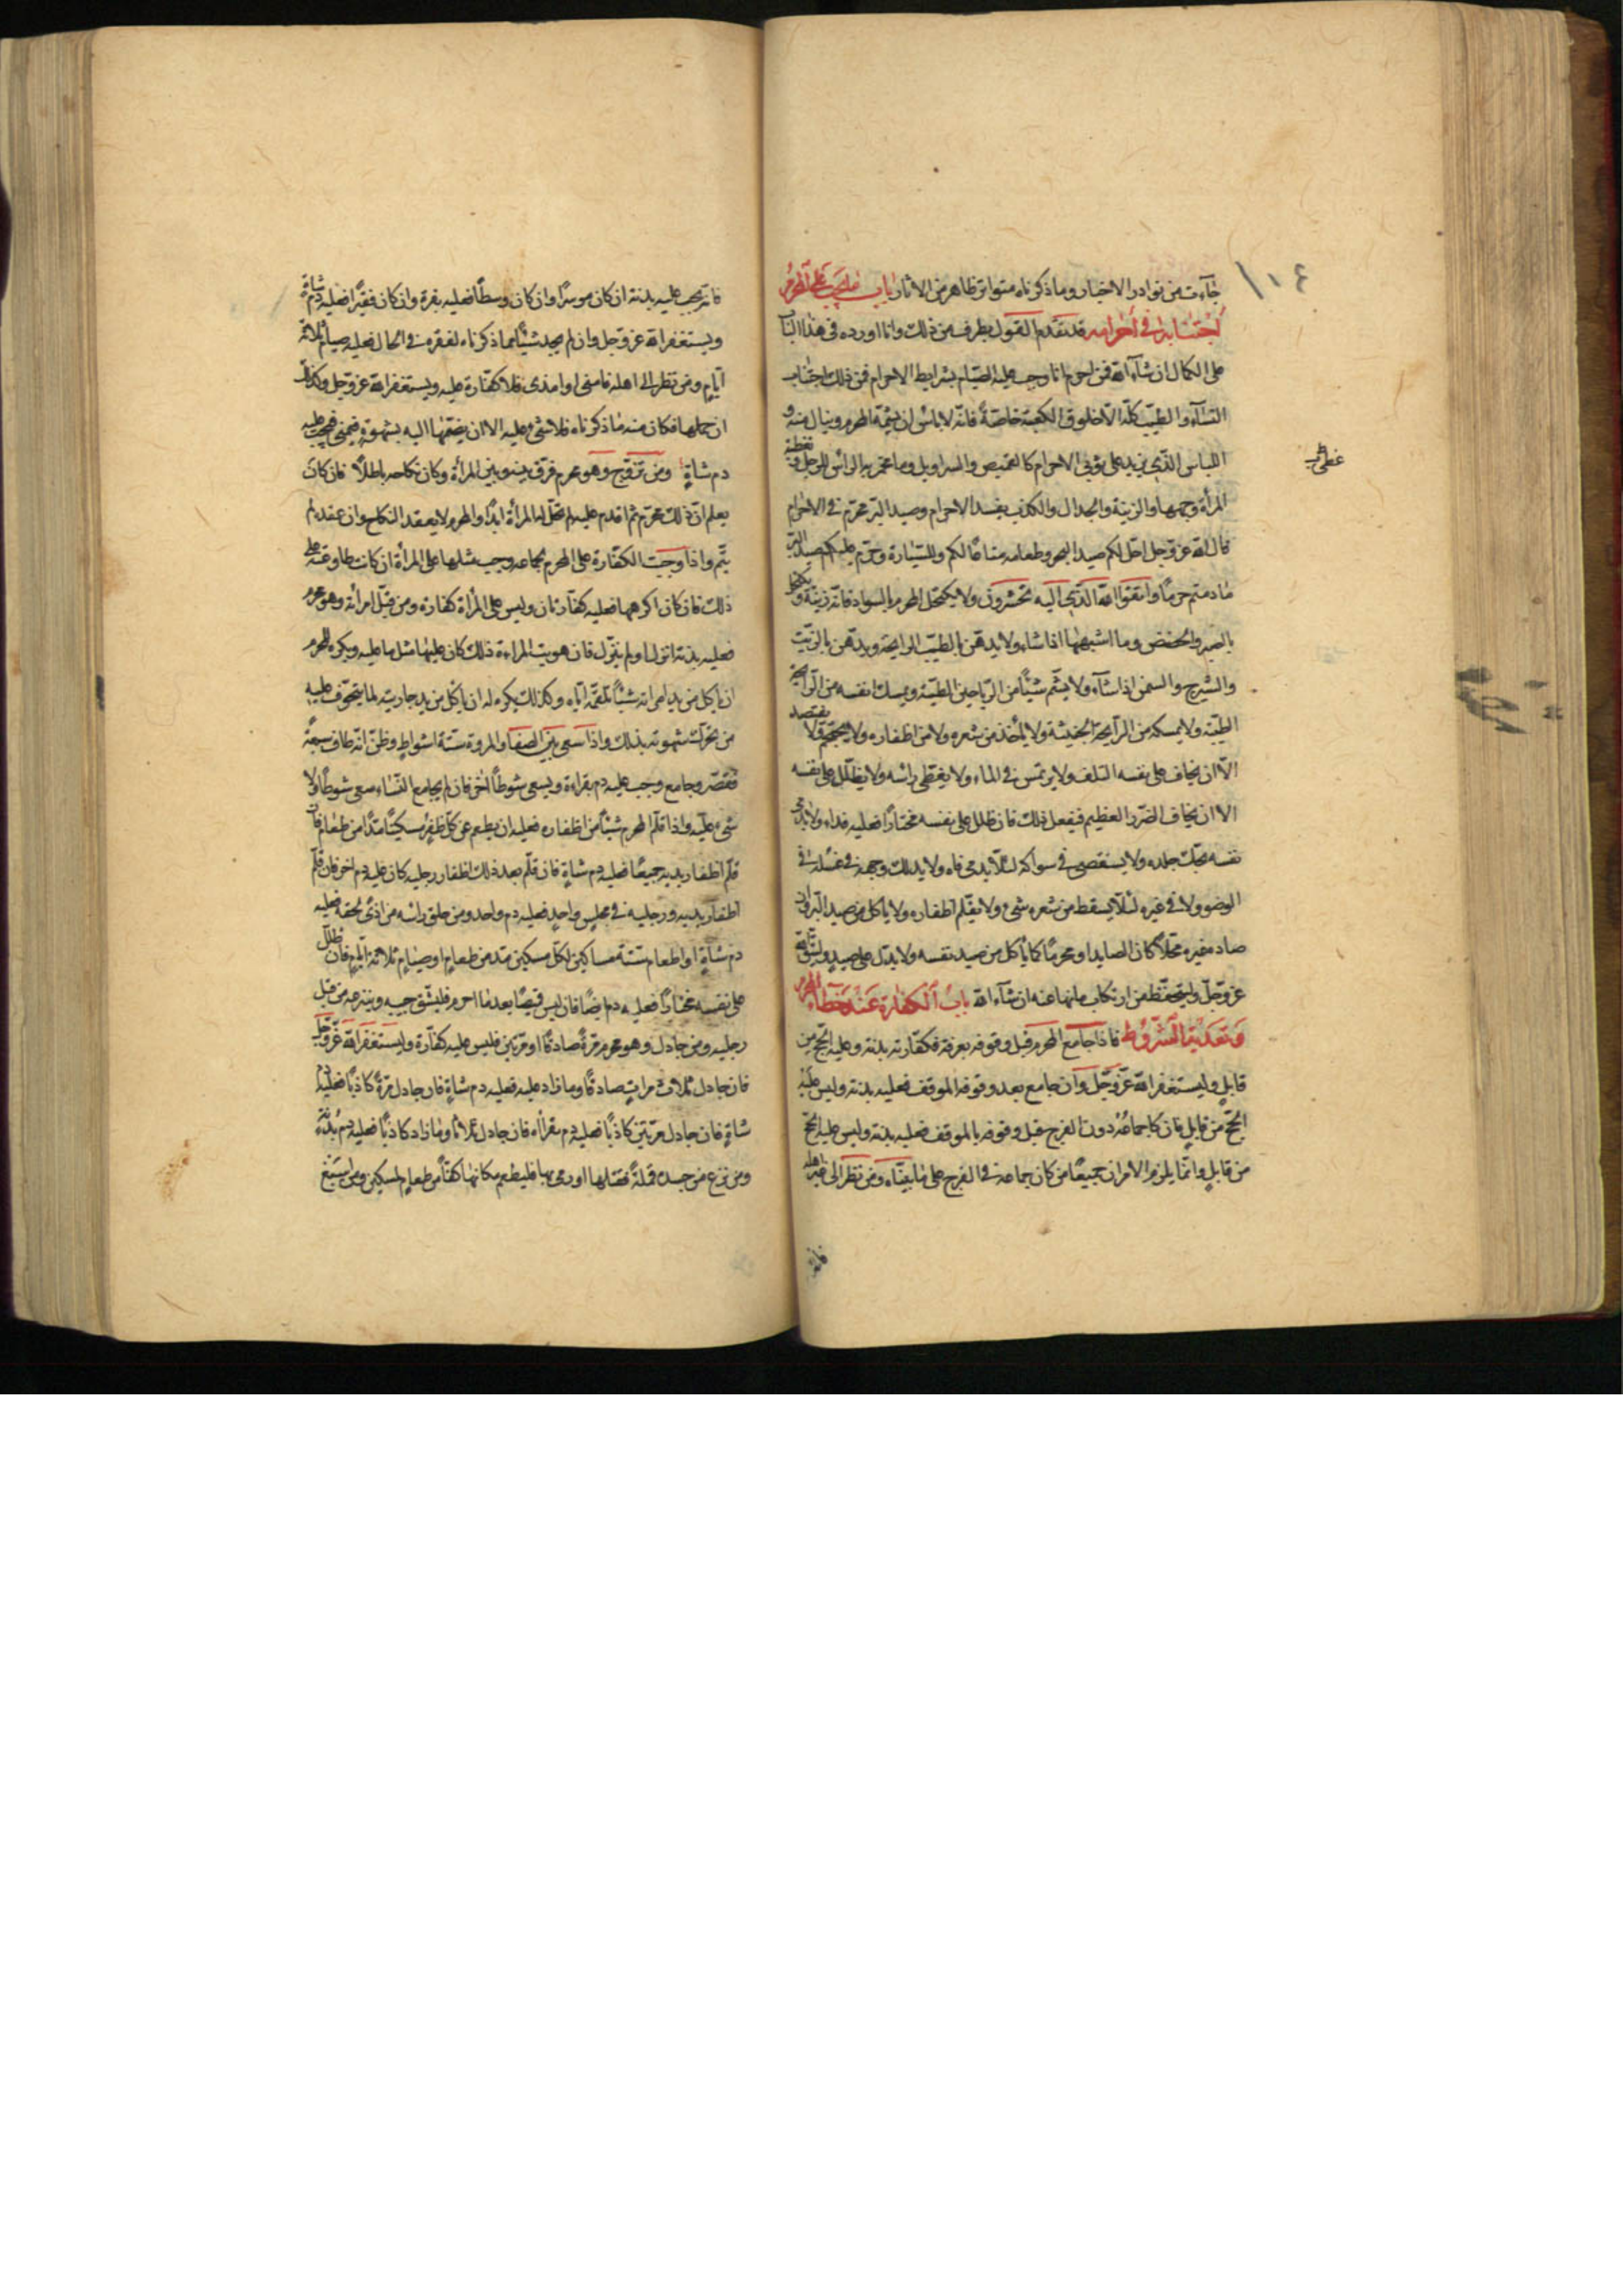 ١٠٤
جآءت من نوادر الاخبار وما ذكرناه متواتر ظاهر من الاثار باب ما يجب على المحرم
اجتنابه فى احرامه قد تقدم القول بطرف من ذلك وانا اورده فى هذا الباب
على الكمال ان شآء الله فمن احرم وجب عليه بشرايط الاحرام فمن ذلك اجتناب
النسآء والطيب كله الا خلوق الكعبة خاصة فانه لا باس ان يشمه المحرم وينال منه و
اللباس الذى يزيد على ثوبى الاحرام كالقميص والسراويل وما يخمر به الراس للرجل و تغطية
غطى
المرأة وجهها والزينة والجدال والكذب يفسد الاحرام وصيد البر محرم فى الاحرام
قال الله عز وجل احل لكم صيد البحر وطعامه متاعا لكم وللسيارة وحرم عليكم صيد البر
ما دمتم حرما واتقوا الله الذى اليه تحشرون ولا يكتحل المحرم بالسواد فانه زينة و يكتحل
بالصبر والحضض وما اشبهها اذا شاء ولا يدهن بالطيب الرايحة ويدهن بالزيت
والشيرج والسمن اذا شآء ولا يشم شيئا من الرياحين الطيبة ويمسك انفه من الرايحة
الطيبة ولا يمسكه من الرايحة الخبيثة ولا يأخذ من شعره ولا من اظفاره ولا يحتجم ولا يفتصد
الا ان يخاف على نفسه التلف ولا يرتمس فى الماء ولا يغطى راسه ولا يظلل على نفسه
الا ان يخاف الضرر العظيم فيفعل ذلك فان ظلل على نفسه مختارا فعليه فداء ولا يدمى
نفسه بحك جلده ولا يستقصى فى سواكه لئلا يدمى فاه ولا يدلك وجهه فى غسله فى
الوضوء ولا فى غيره لئلا يسقط من شعره شىء ولا يقلم اظفاره ولا ياكل من صيد البر وان
صاده غيره محلا كان الصايد او محرما كما لا يأكل من صيد نفسه ولا يدل على صيد وليتق الله
عز وجل وليتحفظ من ارتكاب ما نهاه عنه ان شآء الله باب الكفارة عن خطأ المحرم
وتعديه الشروط فاذا جامع المحرم قبل وقوفه بعرفة فكفارته بدنة وعليه الحج من
قابل وليستغفر الله عز وجل وان جامع بعد وقوفه الموقف فعليه بدنة وليس عليه
الحج من قابل فان كان جماعه دون الفرج قبل وقوفه بالموقف فعليه بدنة وليس عليه الحج
من قابل وانما يلزم الامران جميعا من كان جماعه فى الفرج على ما بيناه ومن نظر الى غير اهله
فانه
فانه يجب عليه بدنة ان كان موسرا وان كان وسطا فعليه بقرة وان كان فقيرا فعليه دم شاة
ويستغفر الله عز وجل وان لم يجد شيئا مما ذكرناه لفقره فى الحال فعليه صيام ثلاثة
ايام ومن نظر الى اهله فامنى او امذى فلا كفارة عليه ويستغفر الله عز وجل وكذلك
ان حملها فكان منه ما ذكرناه فلا شىء عليه الا ان يضمها اليه بشهوة فيمنى فيجب عليه
دم شاة ومن تزوج وهو محرم فرق بينه وبين المرأة وكان نكاحه باطلا فان كان
يعلم ان ذلك محرم ثم اقدم عليه لم تحل له المرأة ابدا والمحرم لا يعقد النكاح وان عقده لم
يتم واذا وجبت الكفارة على المحرم بجماعه وجب مثلها على المرأة ان كانت طاوعته على
ذلك فان كان اكرهها فعليه كفارتان وليس على المرأة كفارة ومن قبل امرأته وهو محرم
فعليه بدنة انزل او لم ينزل فان هويت المراءة ذلك كان عليها مثل ما عليه ويكره للمحرم
ان ياكل من يد امرأته شيئا تلقمه اياه وكذلك يكره له ان يأكل من يد جاريته لما يتخوف عليه
من تحرك شهوته بذلك واذا سعى بين الصفا والمروة ستة اشواط وظن انه طاف سبعة
فقصر وجامع وجب عليه دم بقراءة ويسعى شوطا اخر فان لم يجامع النساء سعى شوطا ولا
شىء عليه واذا قلم المحرم شيئا من اظفاره فعليه ان يطعم عن كل ظفر مسكينا مدا من طعام فان
قلم اظفار يديه جميعا فعليه دم شاة فان قلم بعد ذلك اظفار رجليه كان عليه دم اخر فان قلم
اظفار يديه ورجليه فى مجلس واحد فعليه دم واحد ومن حلق راسه من اذى لحقه فعليه
دم شاة او اطعام ستة مساكين لكل مسكين مد من طعام او صيام ثلاثة ايام فان ظلل
على نفسه مختارا فعليه دم ايضا فان لبس قميصا بعد ما احرم فليشق جيبه وينزعه من قبل
رجليه ومن جادل وهو محرم مرة صادقا او مرتين فليس عليه كفارة وليستغفر الله عز وجل
فان جادل ثلاث مرات صادقا وما زاد عليه فعليه دم شاة فان جادل مرة كاذبا فعليه دم
شاة فان جادل مرتين كاذبا فعليه دم بقراءه فان جادل ثلاثا وما زاد كاذبا فعليه دم بدنة
ومن نزع من جسده قملة فقتلها او رمى بها فليطعم مكانها كفا من طعام لمسكين